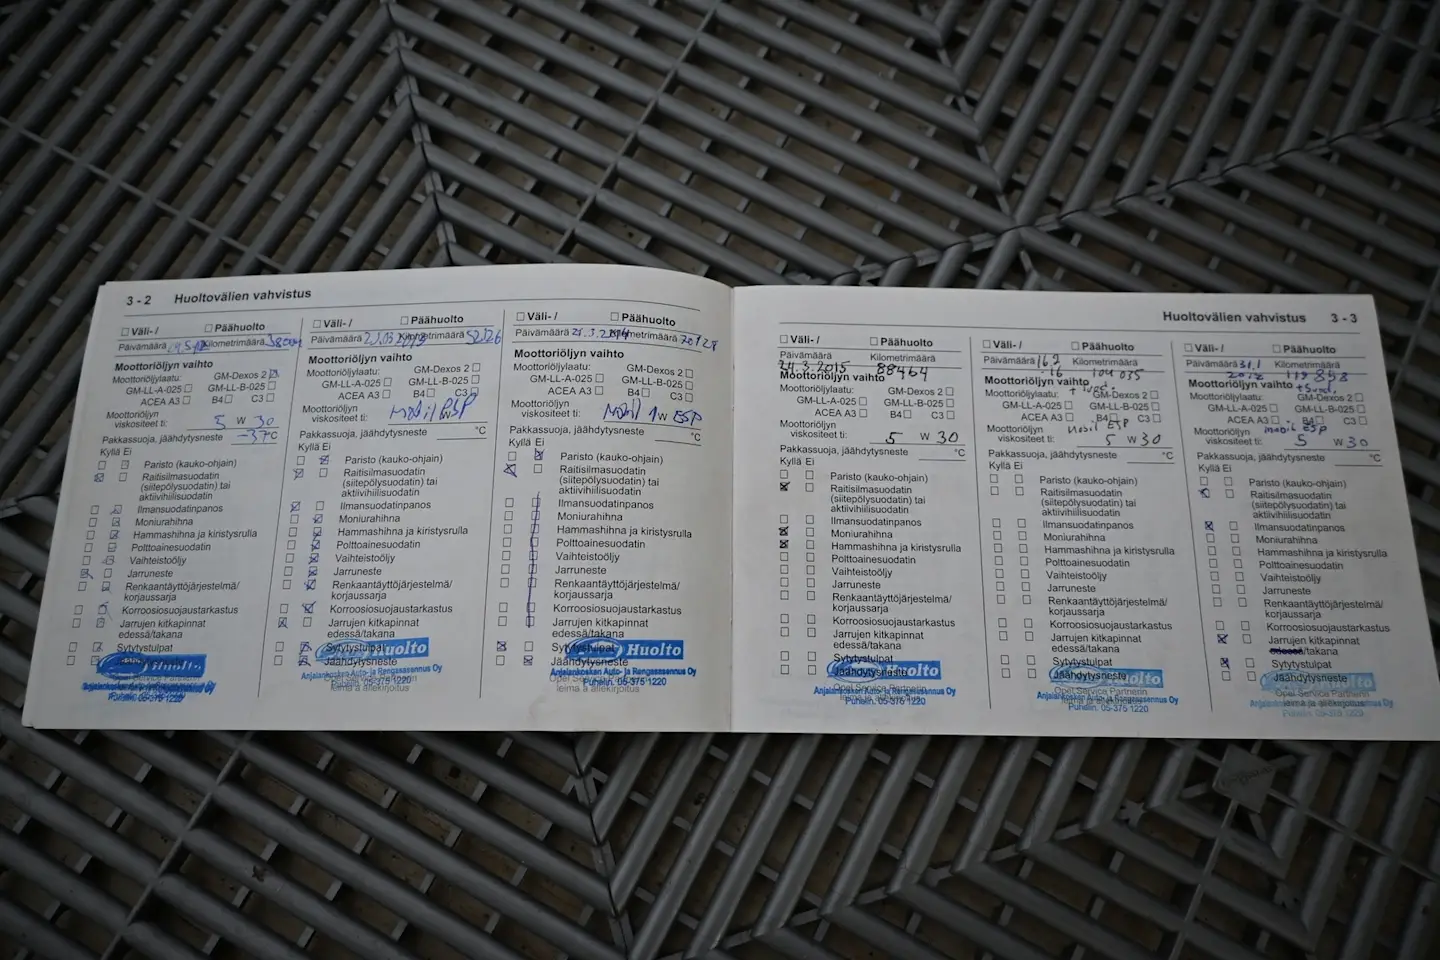 3 - 2 Huoltovälien vahvistus
Väli- / Päähuolto
Päivämäärä Kilometrimäärä
Moottoriöljyn vaihto
Moottoriöljylaatu: GM-Dexos 2
GM-LL-A-025 GM-LL-B-025
ACEA A3 B4 C3
Moottoriöljyn
viskositeet ti: 5 W 30
Pakkassuoja, jäähdytysneste -37 °C
Kyllä Ei
Paristo (kauko-ohjain)
Raitisilmasuodatin
(siitepölysuodatin) tai
aktiivihiilisuodatin
Ilmansuodatinpanos
Moniurahihna
Hammashihna ja kiristysrulla
Polttoainesuodatin
Vaihteistoöljy
Jarruneste
Renkaantäyttöjärjestelmä/
korjaussarja
Korroosiosuojaustarkastus
Jarrujen kitkapinnat
edessä/takana
Sytytystulpat
Jäähdytysneste
Huolto
Anjalankosken Auto- ja Rengasasennus Oy
Puhelin. 05-375 1220
Väli- / Päähuolto
Päivämäärä Kilometrimäärä 52126
Moottoriöljyn vaihto
Moottoriöljylaatu: GM-Dexos 2
GM-LL-A-025 GM-LL-B-025
ACEA A3 B4 C3
Moottoriöljyn
viskositeet ti: Mobil ESP W
Pakkassuoja, jäähdytysneste °C
Kyllä Ei
Paristo (kauko-ohjain)
Raitisilmasuodatin
(siitepölysuodatin) tai
aktiivihiilisuodatin
Ilmansuodatinpanos
Moniurahihna
Hammashihna ja kiristysrulla
Polttoainesuodatin
Vaihteistoöljy
Jarruneste
Renkaantäyttöjärjestelmä/
korjaussarja
Korroosiosuojaustarkastus
Jarrujen kitkapinnat
edessä/takana
Sytytystulpat
Jäähdytysneste
Huolto
Anjalankosken Auto- ja Rengasasennus Oy
Puhelin. 05-375 1220
Väli- / Päähuolto
Päivämäärä 21.3.2014 Kilometrimäärä
Moottoriöljyn vaihto
Moottoriöljylaatu: GM-Dexos 2
GM-LL-A-025 GM-LL-B-025
ACEA A3 B4 C3
Moottoriöljyn
viskositeet ti: Mobil 1 W ESP
Pakkassuoja, jäähdytysneste °C
Kyllä Ei
Paristo (kauko-ohjain)
Raitisilmasuodatin
(siitepölysuodatin) tai
aktiivihiilisuodatin
Ilmansuodatinpanos
Moniurahihna
Hammashihna ja kiristysrulla
Polttoainesuodatin
Vaihteistoöljy
Jarruneste
Renkaantäyttöjärjestelmä/
korjaussarja
Korroosiosuojaustarkastus
Jarrujen kitkapinnat
edessä/takana
Sytytystulpat
Jäähdytysneste
Huolto
Anjalankosken Auto- ja Rengasasennus Oy
Puhelin. 05-375 1220
leima a allekirjoitus
Huoltovälien vahvistus 3 - 3
Väli- / Päähuolto
Päivämäärä Kilometrimäärä
24.3.2015 88464
Moottoriöljyn vaihto
Moottoriöljylaatu: GM-Dexos 2
GM-LL-A-025 GM-LL-B-025
ACEA A3 B4 C3
Moottoriöljyn
viskositeet ti: 5 W 30
Pakkassuoja, jäähdytysneste °C
Kyllä Ei
Paristo (kauko-ohjain)
Raitisilmasuodatin
(siitepölysuodatin) tai
aktiivihiilisuodatin
Ilmansuodatinpanos
Moniurahihna
Hammashihna ja kiristysrulla
Polttoainesuodatin
Vaihteistoöljy
Jarruneste
Renkaantäyttöjärjestelmä/
korjaussarja
Korroosiosuojaustarkastus
Jarrujen kitkapinnat
edessä/takana
Sytytystulpat
Jäähdytysneste
Huolto
Opel Service Partnerin
Anjalankosken Auto- ja Rengasasennus Oy
Puhelin. 05-375 1220
Väli- / Päähuolto
Päivämäärä 16.2 Kilometrimäärä
.16 104 035
Moottoriöljyn vaihto
GM-Dexos 2
GM-LL-A-025 GM-LL-B-025
ACEA A3 B4 C3
Moottoriöljyn Mobil ESP
viskositeet ti: 5 W 30
Pakkassuoja, jäähdytysneste °C
Kyllä Ei
Paristo (kauko-ohjain)
Raitisilmasuodatin
(siitepölysuodatin) tai
aktiivihiilisuodatin
Ilmansuodatinpanos
Moniurahihna
Hammashihna ja kiristysrulla
Polttoainesuodatin
Vaihteistoöljy
Jarruneste
Renkaantäyttöjärjestelmä/
korjaussarja
Korroosiosuojaustarkastus
Jarrujen kitkapinnat
edessä/takana
Sytytystulpat
Jäähdytysneste
Huolto
Opel Service Partnerin
Anjalankosken Auto- ja Rengasasennus Oy
Puhelin. 05-375 1220
Väli- / Päähuolto
Päivämäärä 31.1 Kilometrimäärä
Moottoriöljyn vaihto
Moottoriöljylaatu: GM-Dexos 2
GM-LL-A-025 GM-LL-B-025
ACEA A3 B4 C3
Moottoriöljyn Mobil ESP
viskositeet ti: 5 W 30
Pakkassuoja, jäähdytysneste °C
Kyllä Ei
Paristo (kauko-ohjain)
Raitisilmasuodatin
(siitepölysuodatin) tai
aktiivihiilisuodatin
Ilmansuodatinpanos
Moniurahihna
Hammashihna ja kiristysrulla
Polttoainesuodatin
Vaihteistoöljy
Jarruneste
Renkaantäyttöjärjestelmä/
korjaussarja
Korroosiosuojaustarkastus
Jarrujen kitkapinnat
/takana
Sytytystulpat
Jäähdytysneste
Opel Service Partnerin
leima ja allekirjoitus
Anjalankosken Auto- ja Rengasasennus Oy
Puhelin. 05-375 1220